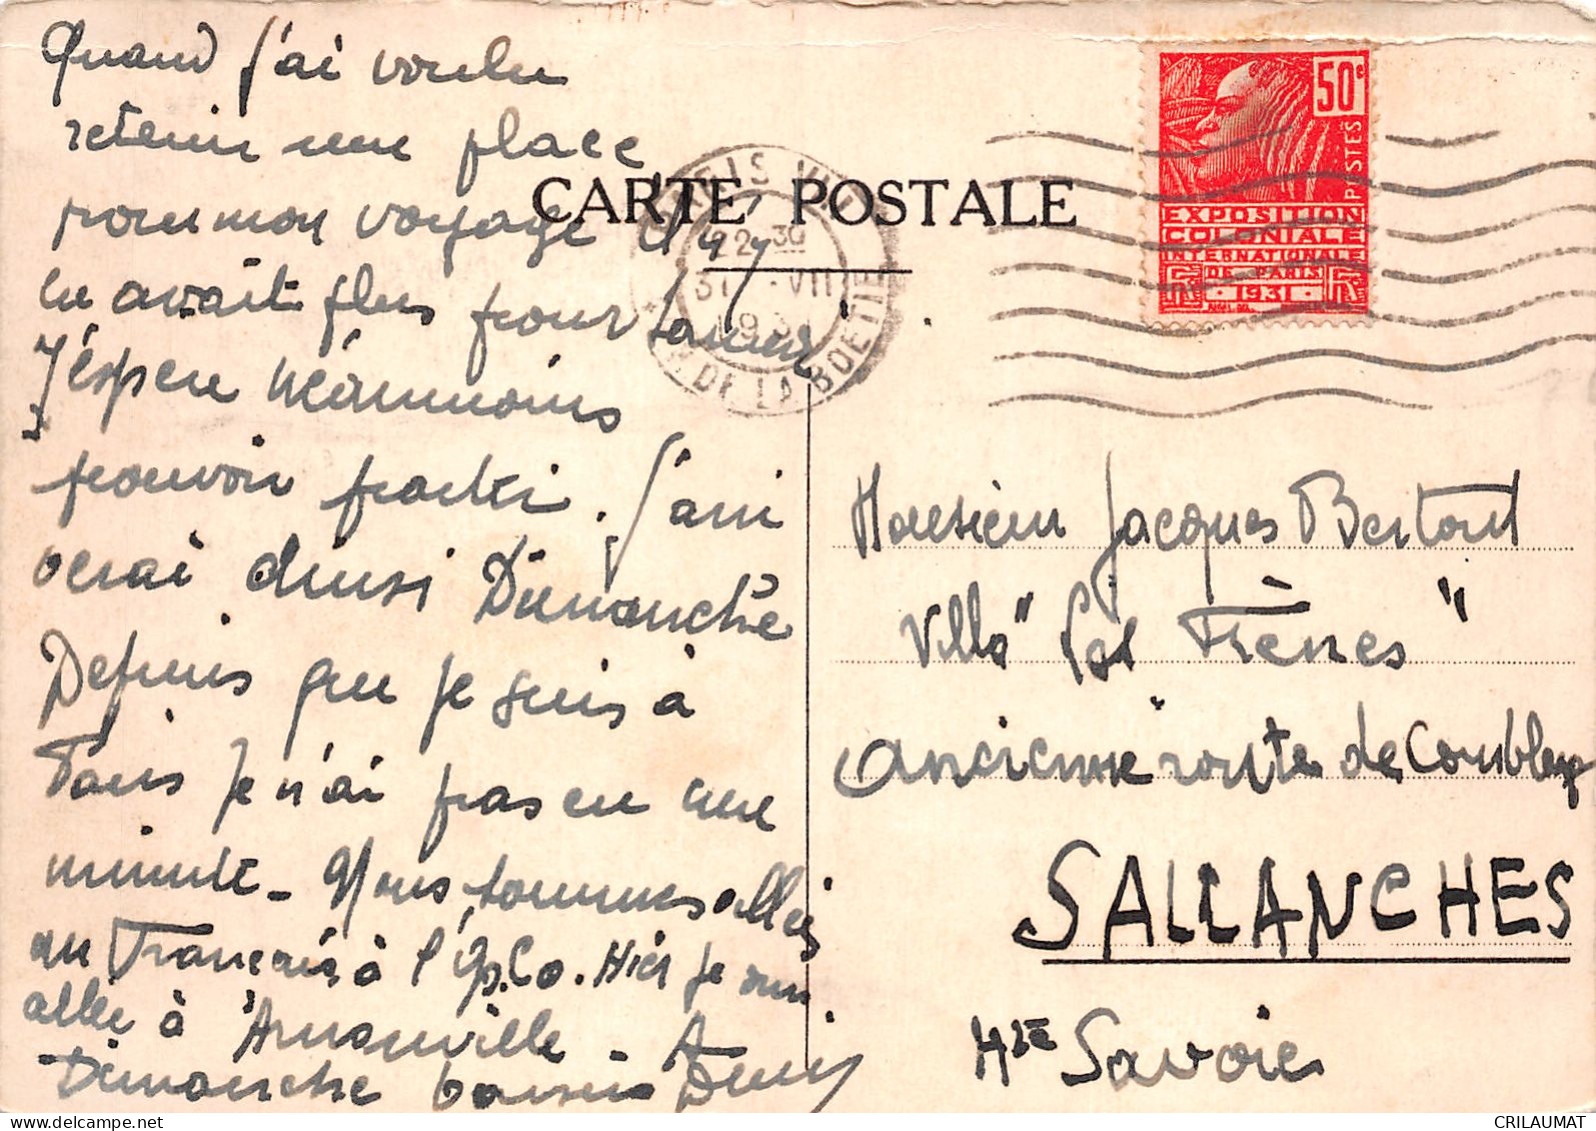 Quand j'ai voulu
retenir une place
pour mon voyage il n'y
en avait plus pour samedi.
J'éspère néanmoins
pouvoir partir. J'arri
verai ainsi Dimanche
Depuis que je suis à
Paris je n'ai pas eu une
minute - Nous sommes allés
au Français à l'Exp. Co. Hier je suis
allée à Arnonville - A
Dimanche baisers Deny
CARTE POSTALE
PARIS VIII
22 30
31 VII
193
R. DE LA BOETIE
50c
POSTES
EXPOSITION
COLONIALE
INTERNATIONALE
DE PARIS
1931
Monsieur Jacques Bertout
Villa "Les Frènes"
Ancienne route de Combloux
SALLANCHES
Hte Savoie
CRILAUMAT